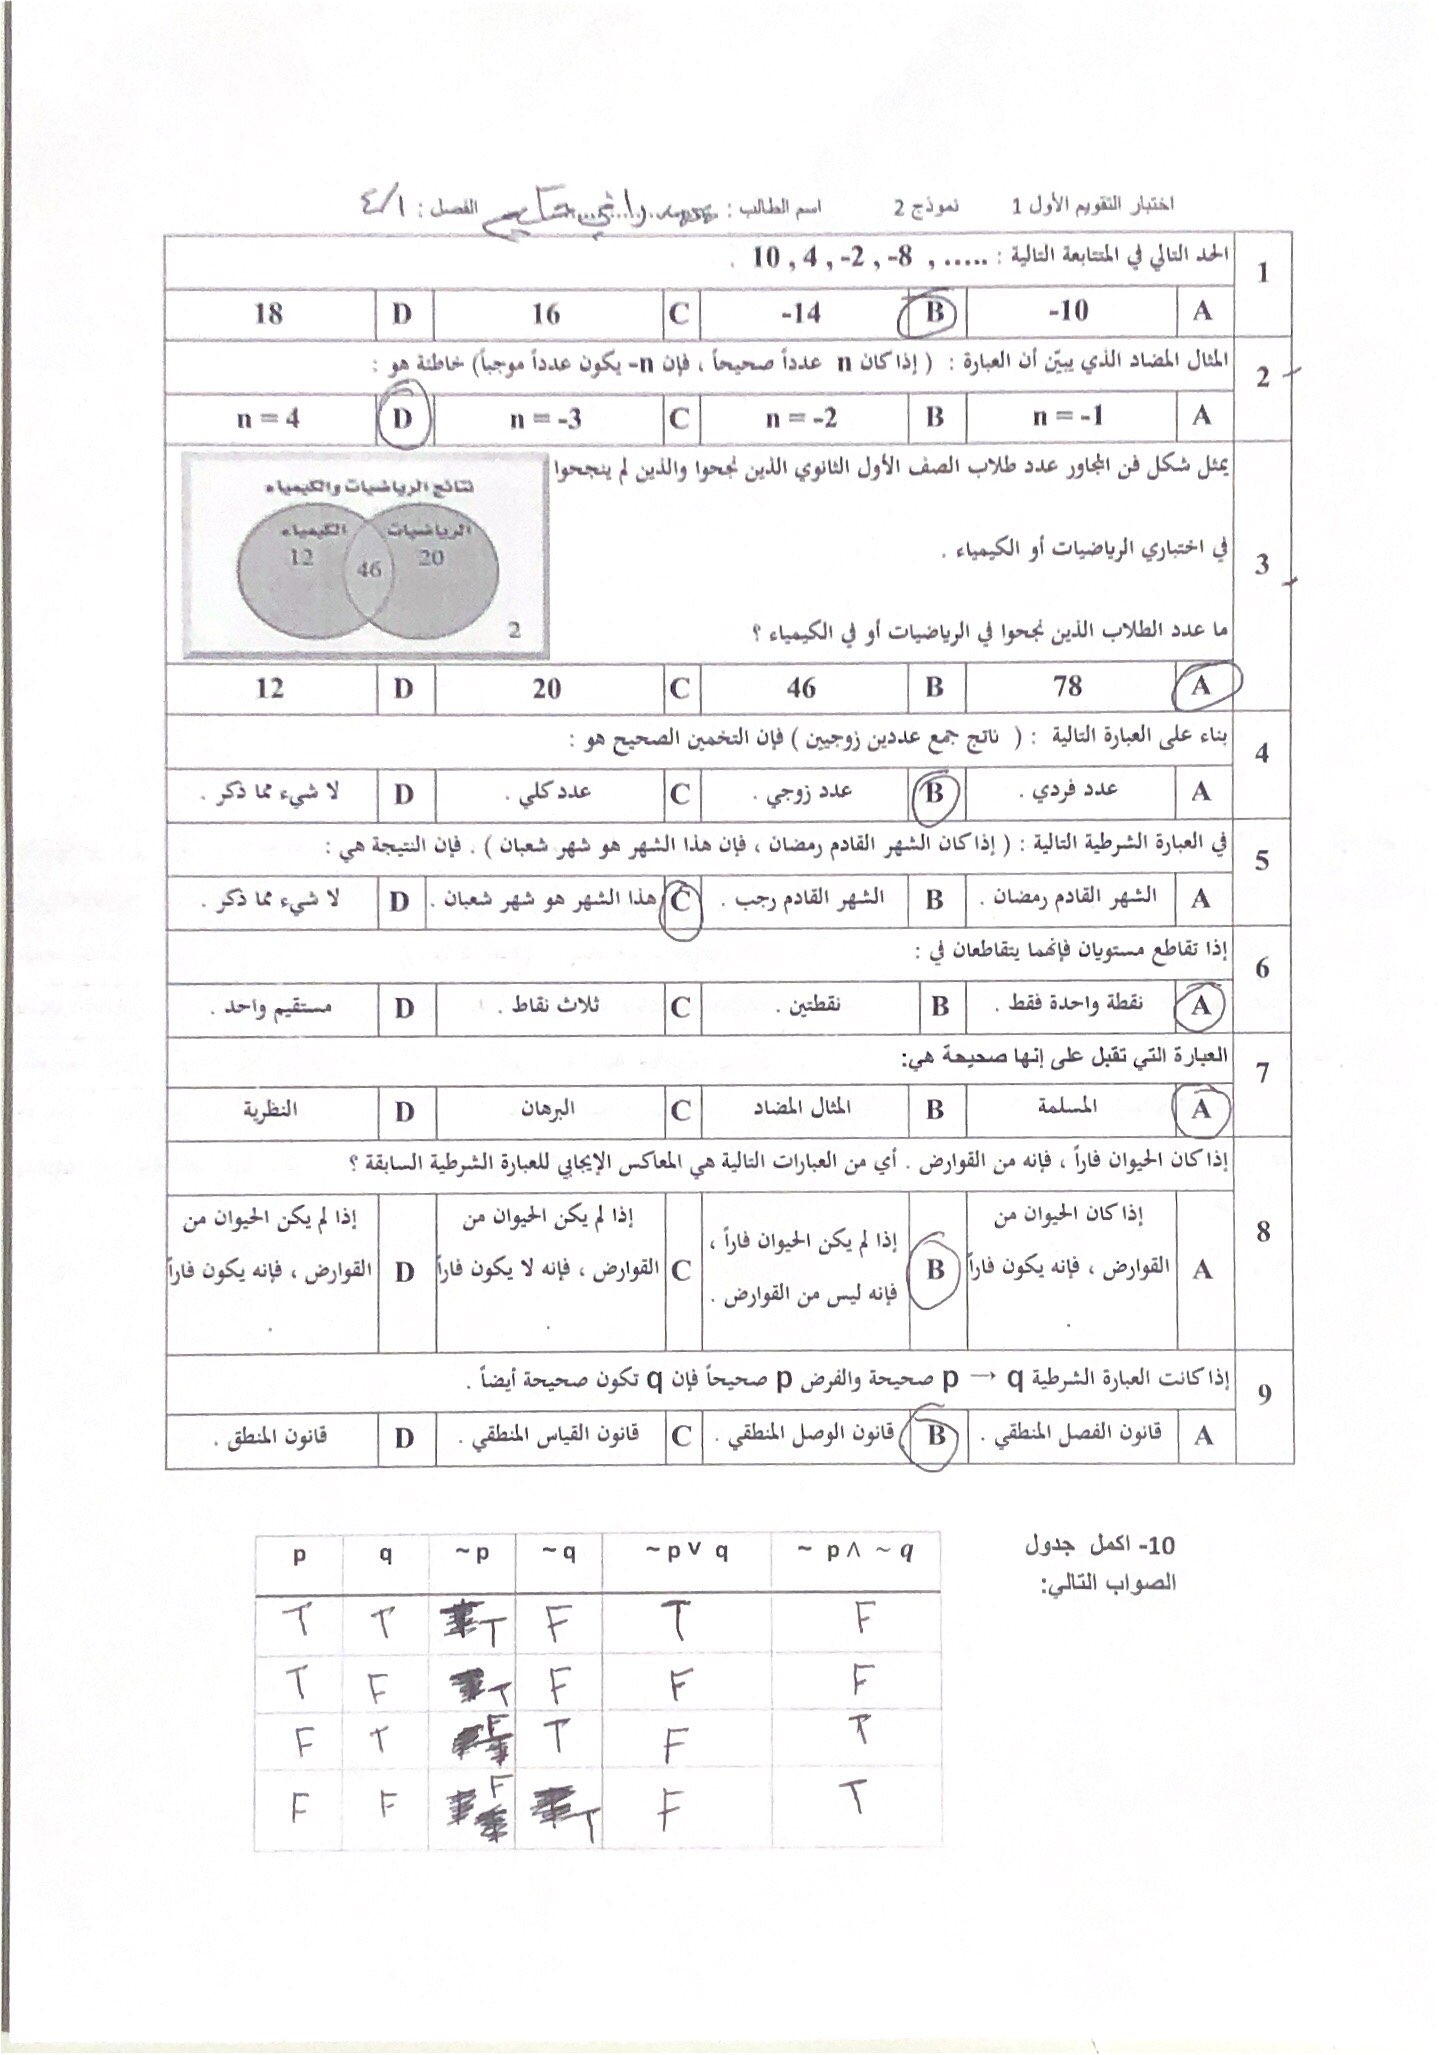 اختبار التقويم الأول 1 نموذج 2 اسم الطالب : الفصل : ٤/١
1 الحد التالي في المتتابعة التالية : 10 , 4 , -2 , -8 , ..... .
A -10 B -14 C 16 D 18
2 المثال المضاد الذي يبيّن أن العبارة : ( إذا كان n عدداً صحيحاً ، فإن n- يكون عدداً موجباً) خاطئة هو :
A n = -1 B n = -2 C n = -3 D n = 4
3 يمثل شكل فن المجاور عدد طلاب الصف الأول الثانوي الذين نجحوا والذين لم ينجحوا
في اختباري الرياضيات أو الكيمياء .
ما عدد الطلاب الذين نجحوا في الرياضيات أو في الكيمياء ؟
نتائج الرياضيات والكيمياء
الرياضيات الكيمياء
20 46 12
2
A 78 B 46 C 20 D 12
4 بناء على العبارة التالية : ( ناتج جمع عددين زوجيين ) فإن التخمين الصحيح هو :
A عدد فردي . B عدد زوجي . C عدد كلي . D لا شيء مما ذكر .
5 في العبارة الشرطية التالية : ( إذا كان الشهر القادم رمضان ، فإن هذا الشهر هو شهر شعبان ) . فإن النتيجة هي :
A الشهر القادم رمضان . B الشهر القادم رجب . C هذا الشهر هو شهر شعبان . D لا شيء مما ذكر .
6 إذا تقاطع مستويان فإنهما يتقاطعان في :
A نقطة واحدة فقط . B نقطتين . C ثلاث نقاط . D مستقيم واحد .
7 العبارة التي تقبل على إنها صحيحة هي:
A المسلمة B المثال المضاد C البرهان D النظرية
8 إذا كان الحيوان فاراً ، فإنه من القوارض . أي من العبارات التالية هي المعاكس الإيجابي للعبارة الشرطية السابقة ؟
A إذا كان الحيوان من القوارض ، فإنه يكون فاراً . B إذا لم يكن الحيوان فاراً ، فإنه ليس من القوارض . C إذا لم يكن الحيوان من القوارض ، فإنه لا يكون فاراً . D إذا لم يكن الحيوان من القوارض ، فإنه يكون فاراً .
9 إذا كانت العبارة الشرطية p → q صحيحة والفرض p صحيحاً فإن q تكون صحيحة أيضاً .
A قانون الفصل المنطقي . B قانون الوصل المنطقي . C قانون القياس المنطقي . D قانون المنطق .
10- اكمل جدول
الصواب التالي:
p q ~p ~q ~p v q ~ p ∧ ~q
T T T F T F
T F T F F F
F T F T F T
F F F T F T